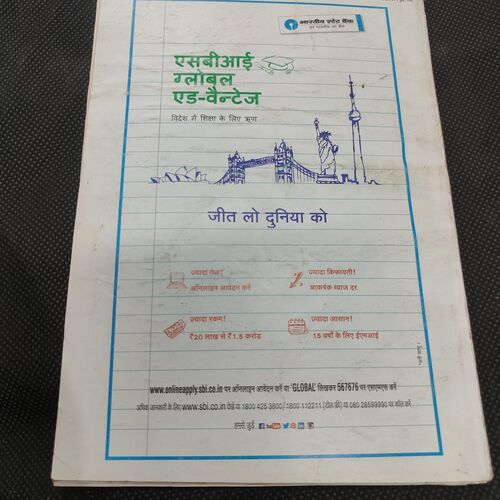 भारतीय स्टेट बैंक
एसबीआई
ग्लोबल
एड-वैन्टेज
विदेश में शिक्षा के लिए ऋण
जीत लो दुनिया को
ज्यादा तेज़!
ऑनलाइन आवेदन करें
ज्यादा किफ़ायती!
आकर्षक ब्याज दर
ज्यादा रकम!
₹20 लाख से ₹1.5 करोड़
ज्यादा आसान!
15 वर्षों के लिए ईएमआई
www.onlineapply.sbi.co.in पर ऑनलाइन आवेदन करें या 'GLOBAL' लिखकर 567676 पर एसएमएस करें
अधिक जानकारी के लिए www.sbi.co.in देखें या 1800 425 3800 / 1800 112211 (टोल फ्री) या 080 26599990 पर कॉल करें
हमसे जुड़ें